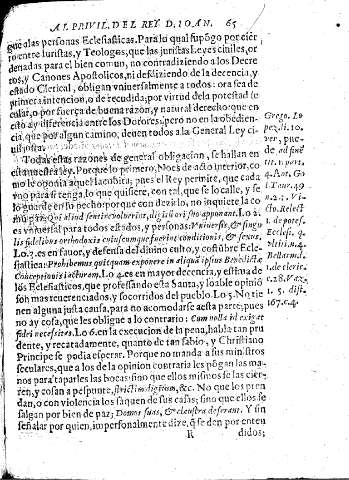 AL PRIVIL. DEL REY D. IOAN. 65
gue a las personas Eclesiasticas. Para lo qual supõgo por cier
to entre Iuristas, y Teologos, que las juristas Leyes ciuiles, or
denadas para el bien comun, no contradiziendo a los Decre
tos, y Canones Apostolicos, ni desdiziendo de la decencia, y
estado Clerical, obligan vniuersalmente a todos: ora sea de
primera intencion, o de recudida; por virtud de la potestad se
cular, o por fuerça de buena razon, y natural derecho: que en
esto ay diferencia entre los Dotores; pero no en la obedien-
cia, que por algun camino, deuen todos a la General Ley ci-
Todas estas razones de general obligacion, se hallan en
esta nuestra ley. Porque lo primero, no es de acto interior, co
mo le oponia aquel Iacobita; pues el Rey permite, que cada
vno para si tenga lo que quisiere, con tal, que se lo calle, y se
lo guarde en su pecho: porque con dezirlo, no inquiete la co
mũ paz. Qui aliud sentire voluerint, digitũ ori suo apponant. Lo 2.
es vniuersal para todos estados, y personas: Vniuersis, & singu
lis fidelibus orthodoxis cuiuscumque fuerint conditionis, & sexus.
Lo 3. es en fauor, y defensa del diuino culto, y costũbre Ecle-
siastica: Prohibemus quicquam exponere in aliqua ipsius Benedictæ
Conceptionis iacturam. Lo 4. es en mayor decencia, y estima de
los Eclesiasticos, que professando esta Santa, y loable opinió
son mas reuerenciados, y socorridos del pueblo. Lo 5. No tie
nen alguna justa causa, para no acomodarse a esta parte; pues
no ay cosa, que les obligue a lo contrario: Cum nulla id exigat
fidei necessitas. Lo 6. en la execucion de la pena, habla tan pru
dente, y recatadamente, quanto de tan sabio, y Christiano
Principe se podia esperar. Porque no manda a sus ministros
seculares, que a los de la opinion contraria les põgan las ma
nos para taparles las bocas: sino que ellos mismos se las cier
ren, y cosan a pespunte, strictim digitum, &c. No que los pren
dan, o con violencia los saquen de sus casas; sino que ellos se
salgan por bien de paz; Domos suas, & claustra deserant. Y sin
señalar por quien, impersonalmente dize, q̃ se den por enten
R didos;
Grego. Lo
pez. li. 10.
ver, pue-
de, ad finē
tit. 1. par.
4. Ant. Go
i Taur. 49
n. 2. 2. Vi-
cto. Relect
1. de potes.
Eccles. q.
vlti. n. 4.
Bellarmi.
1. de cleric.
c. 28. Vaz.
1. 5. dist.
167. c. 4.